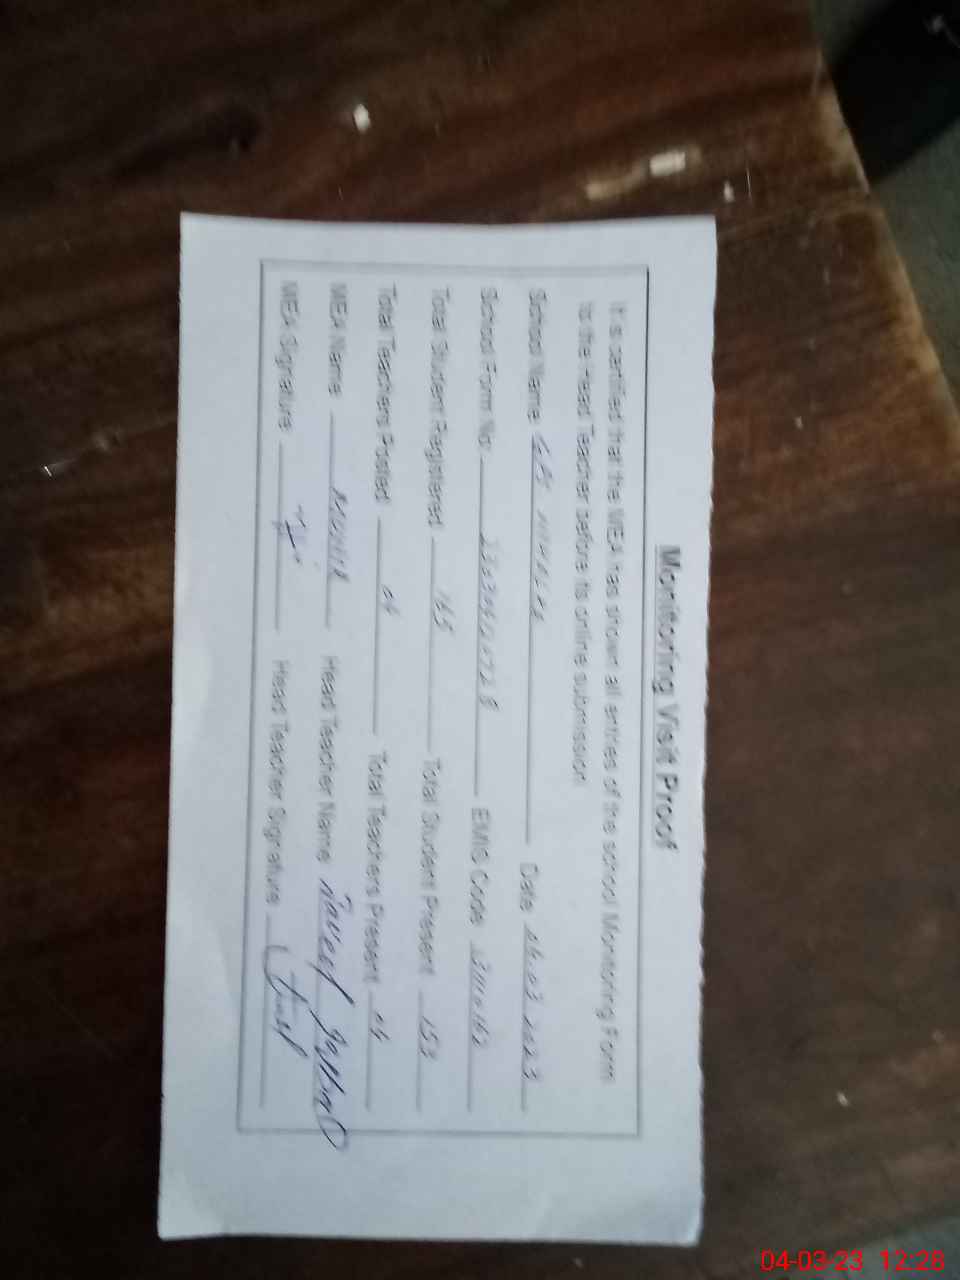 Monitoring Visit Proof
It is certified that the MEA has shown all entries of the school Monitoring Form
to the Head Teacher before its online submission.
School Name GPS Date 04.03.2023
School Form No: EMIS Code
Total Student Registered 165 Total Student Present 153
Total Teachers Posted 04 Total Teachers Present 04
MEA Name Head Teacher Name
MEA Signature Head Teacher Signature
04-03-23 12:28